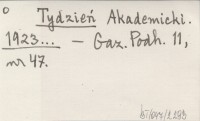 Tydzień Akademicki.
1923... — Gaz. Podh. 11,
nr 47.